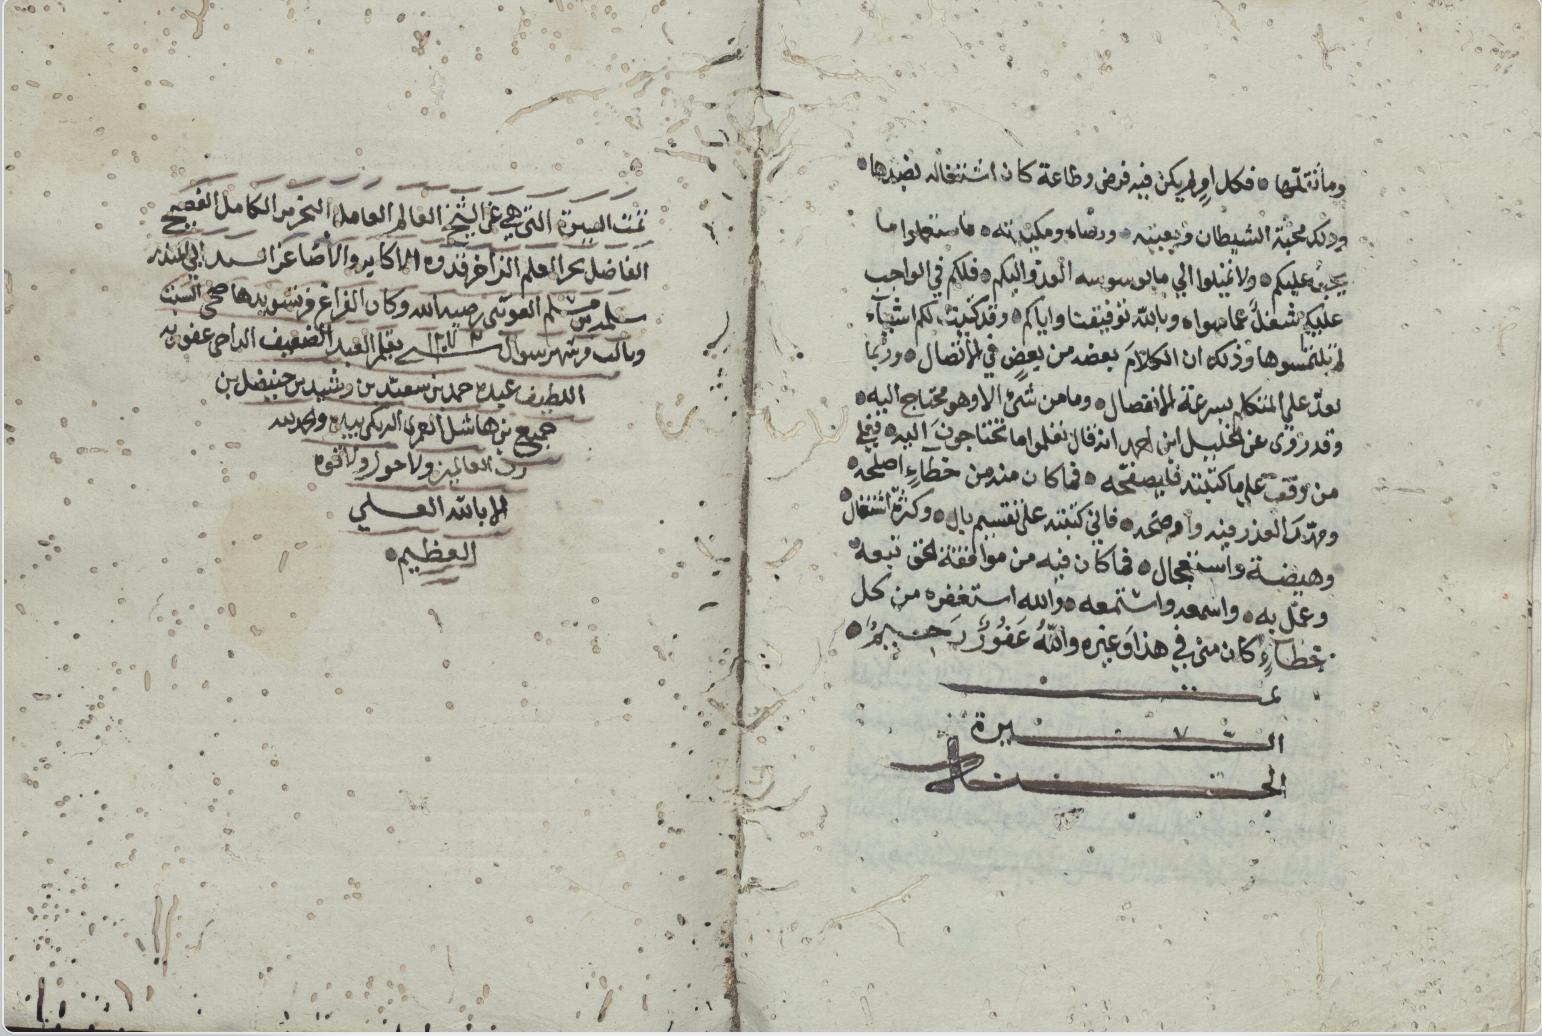 وما نقلتمها ه فكل امر لم يكن فيه فرض وطاعة كان اشتغاله بضدها ه
وذلك محبة الشيطان وبغيته ه ورضاه ومكيدته ه فاستعملوا ما
يجب عليكم ه ولا تميلوا الي ما يوسوسه العدو اليكم ه فلكم في الواجب
عليكم شغل عما سواه وبالله توفيقنا واياكم ه وقد كتبت لكم اشياء
لم تلتمسوها وذلك ان الكلام بعضه من بعض في الاتصال ه وربما
يعدّ علي المتكلم بسرعة الانفصال ه وما من شئ الا وهو محتاج اليه ه
وقد روى عن الخليل ابن احمد انه قال تعلموا ما تحتاجون اليه ه فينبغي
من وقف علي ما كتبته فليصفحه ه فما كان منه من خطآءٍ اصلحه ه
ومهّد العذر فيه واوضحه ه فاني كتبته على تقسيم بال ه وكثرة اشتغال ه
وهيضة واستعجال ه فما كان فيه من موافقة الحق تبعه ه
وعمل به ه واسمعه واستمعه ه والله استغفره من كل
خطآءٍ كان مني في هذا وغيره والله غَفُوُرٌ رَحِيمُ ه
تمت
السيرة
تمت السيرة التي هي عن الشيخ العالم العامل النحرير الكامل الفصيح
الفاضل بحر العلم الزاخر قدوة الاكابر والاصاغر السيد ابي المنذر
سلمة بن مسلم العوتبي رحمه الله وكان الفراغ من تسويدها ضحى السبت
من شهر شوال سنة بقلم العبد الضعيف الراجي عفو ربه
اللطيف عبده حمد بن سعيد بن رشيد بن
جميع بن هاشل العمري بيده والحمد لله
رب العالمين ولا حول ولا قوة
الا بالله العلي
العظيم ه